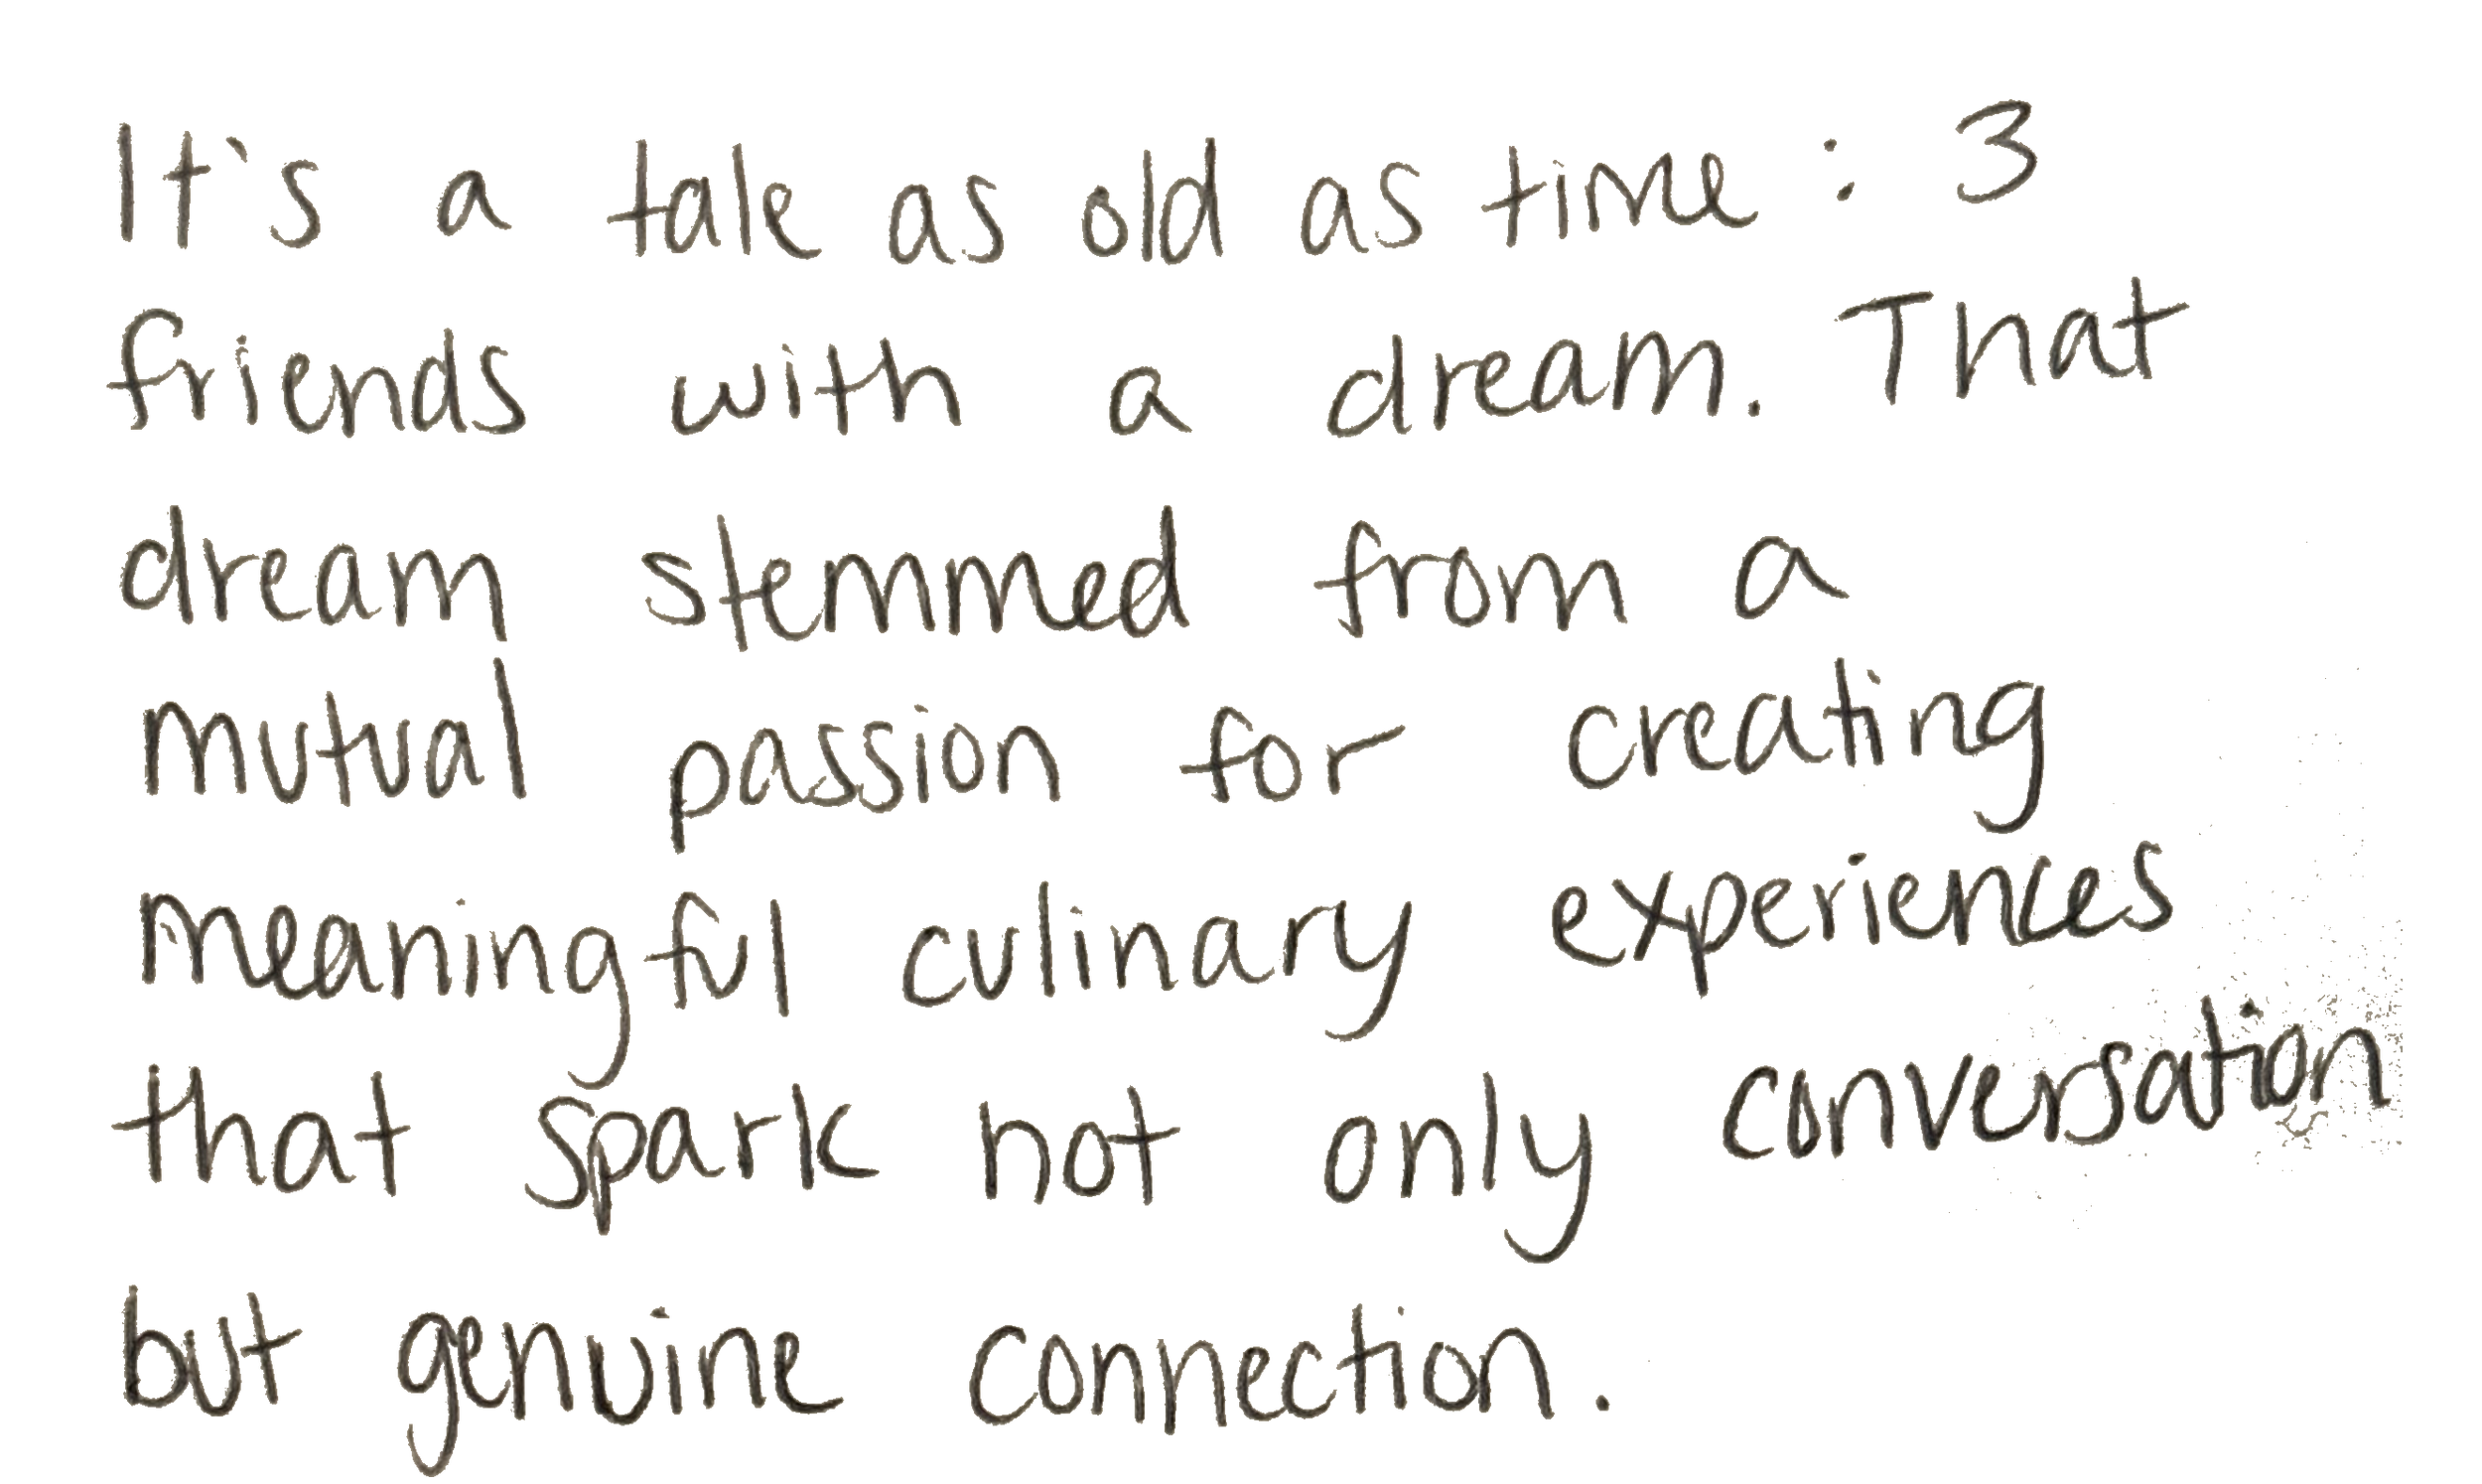 It's a tale as old as time : 3
friends with a dream. That
dream stemmed from a
mutual passion for creating
meaningful culinary experiences
that spark not only conversation
but genuine connection.